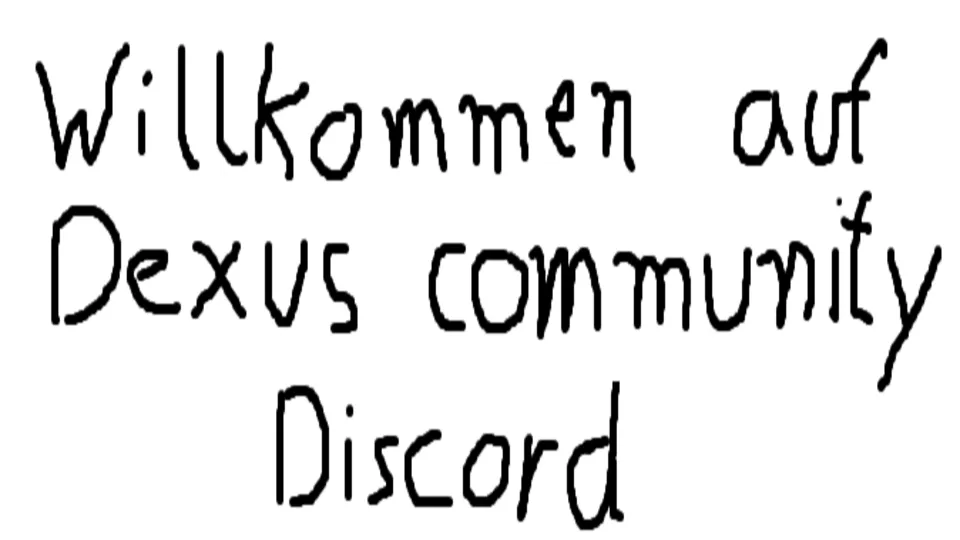 Willkommen auf
Dexus community
Discord